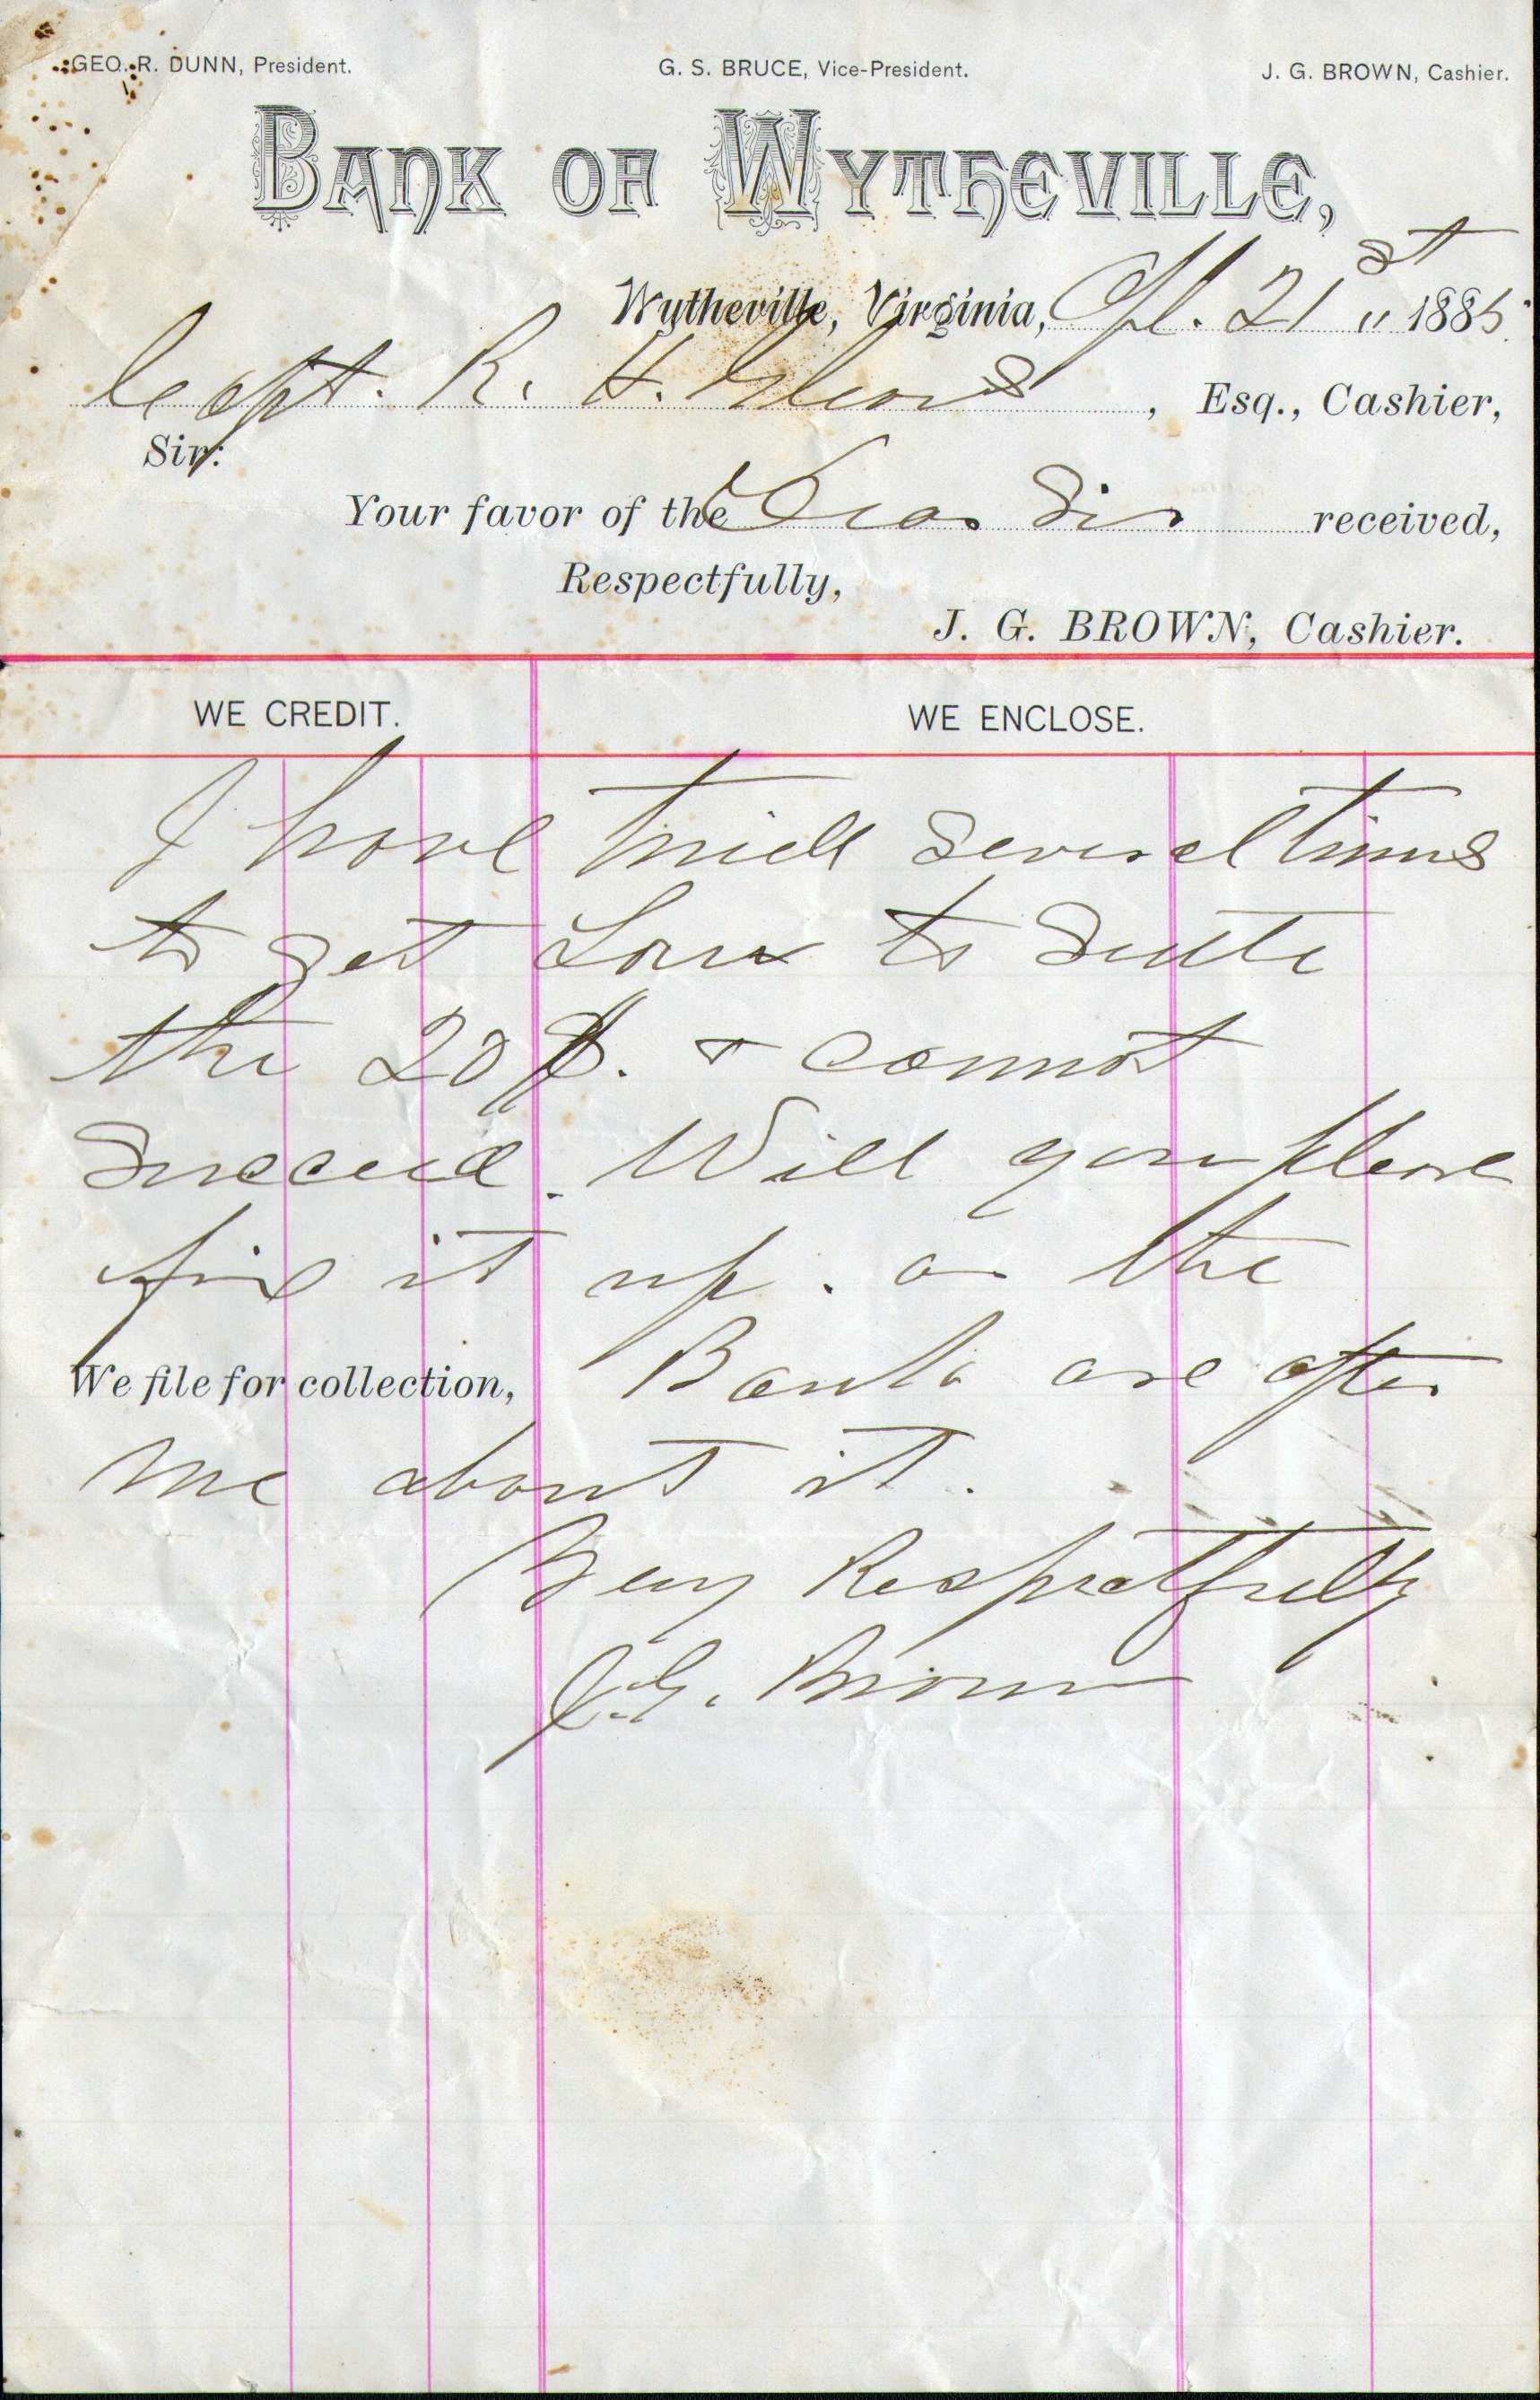 GEO. R. DUNN, President. G. S. BRUCE, Vice-President. J. G. BROWN, Cashier.
BANK OF WYTHEVILLE,
Wytheville, Virginia, Apl. 21st 1885.
Capt. R. H. , Esq., Cashier,
Sir:
Your favor of the Dear Sir received,
Respectfully,
J. G. BROWN, Cashier.
WE CREDIT. WE ENCLOSE.
I have tried several times
to get to
the 20 & cannot
Succeed. Will you please
fix it up. as the
We file for collection, Banks are after
me about it.
Very Respectfully
J. G. Brown